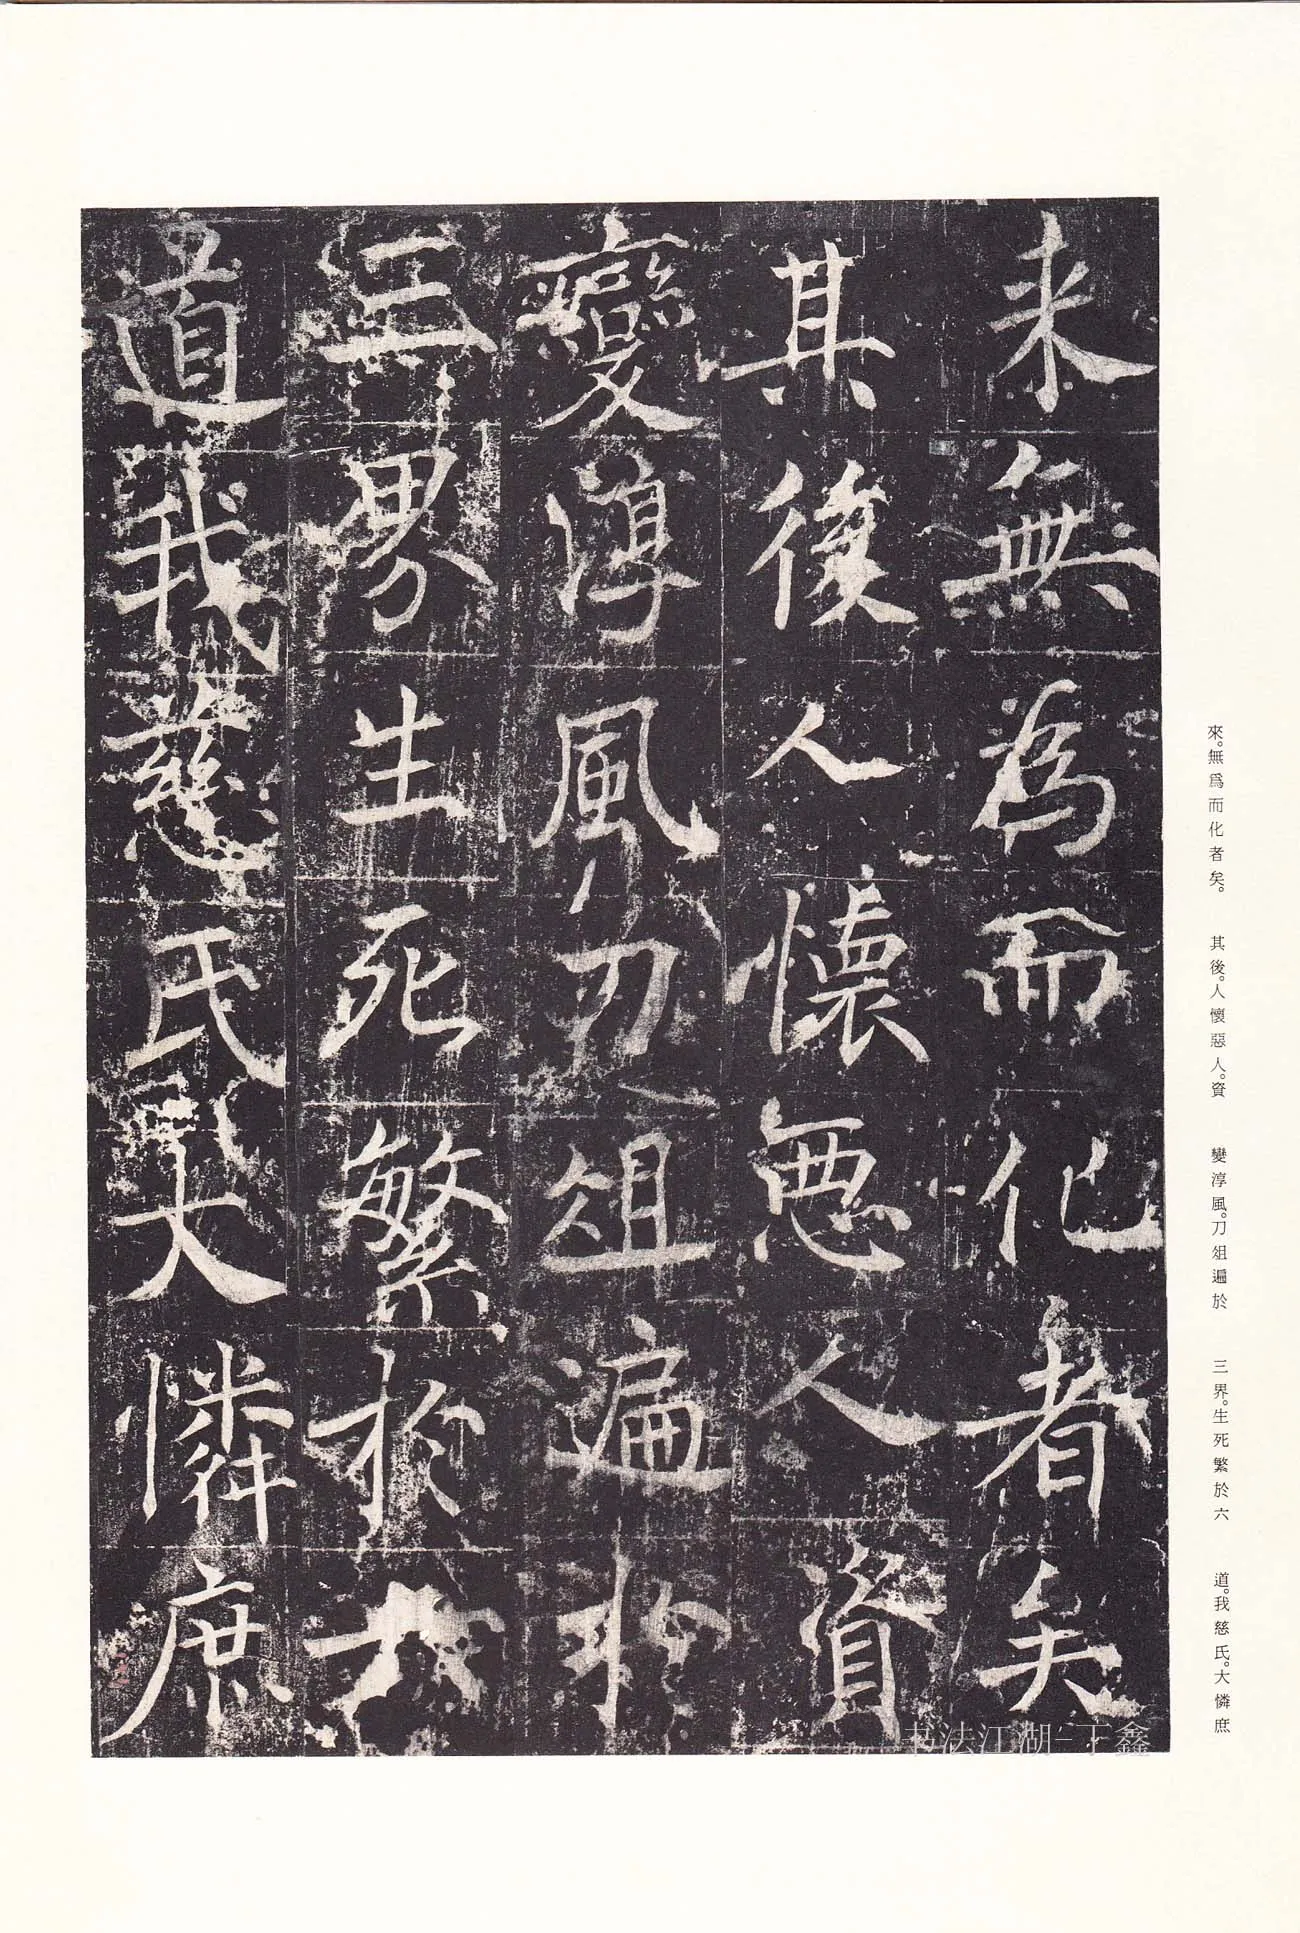 来無為而化者矣
其後人懐惡人資
變淳風刀俎遍於
三界生死繁於六
道我慈氏大憐庶
來。無爲而化者矣。　其後。人懷惡人。資　變淳風。刀俎遍於　三界。生死繁於六　道。我慈氏。大憐庶
书法江湖-丁鑫